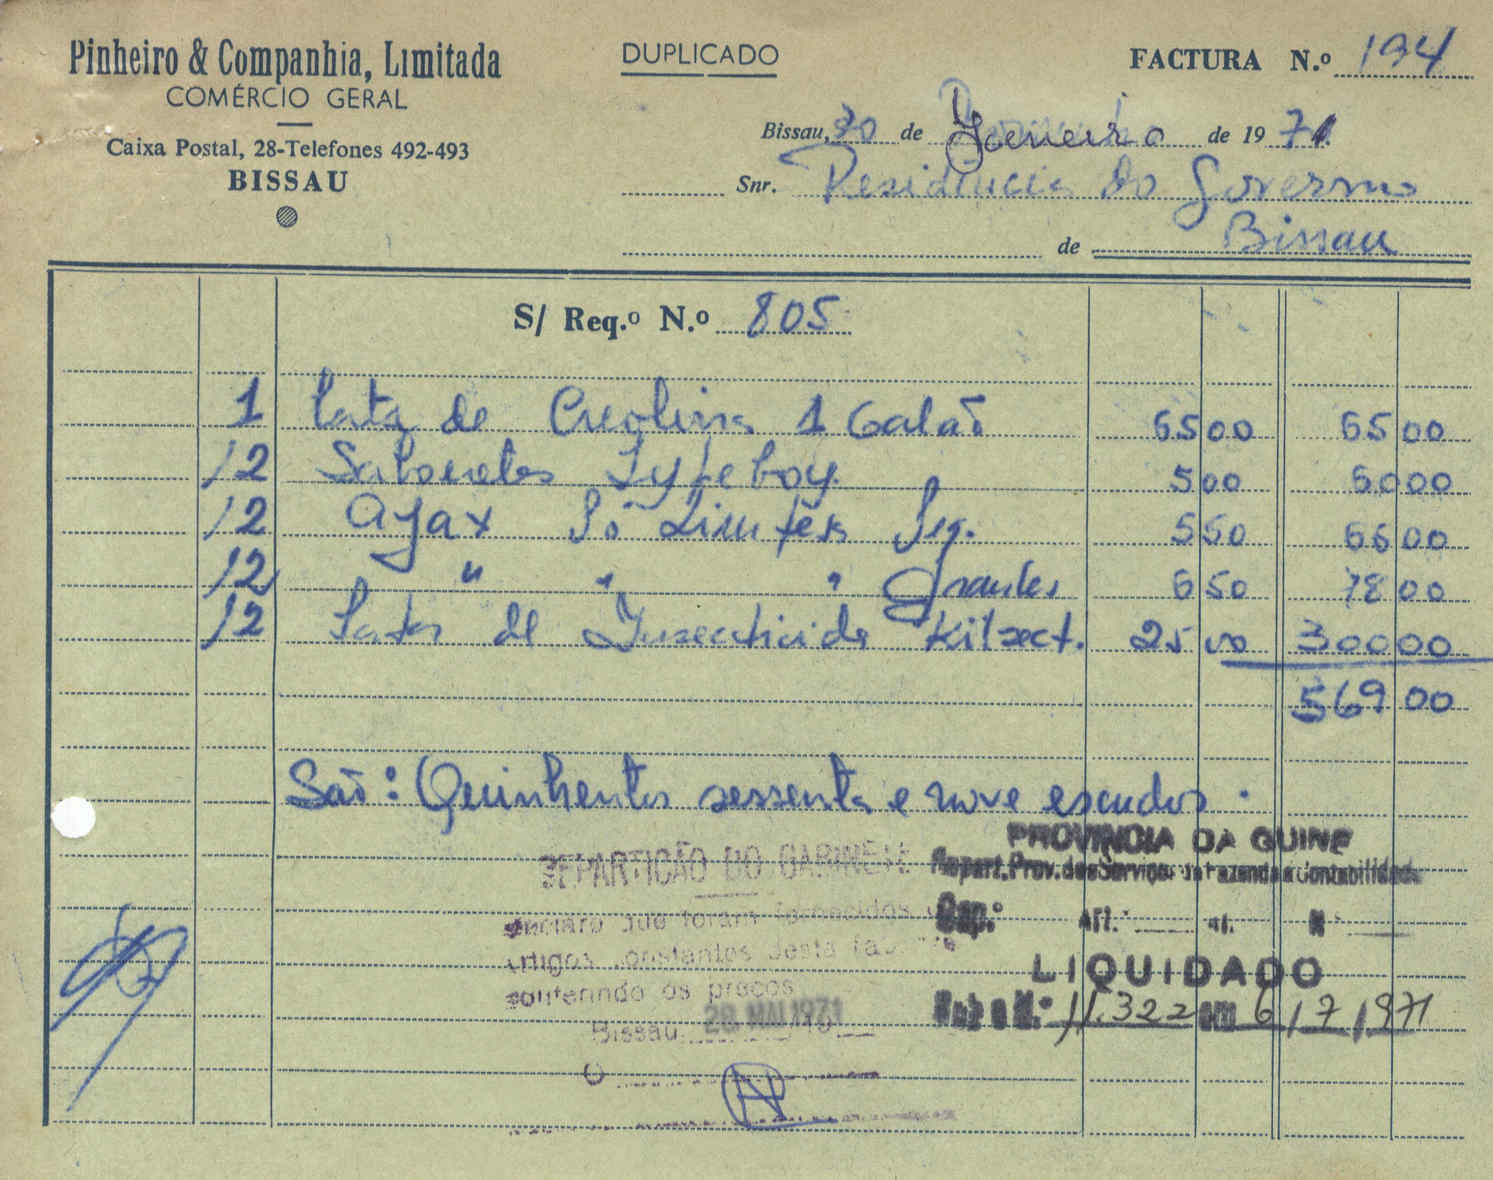 Pinheiro & Companhia, Limitada
COMÉRCIO GERAL
Caixa Postal, 28-Telefones 492-493
BISSAU
DUPLICADO
FACTURA N.º 194
Bissau, 30 de Janeiro de 1971
Snr. Residencia do Governo
de Bissau
S/ Req.º N.º 805
1 lata de Creolina 1 Galão 65 00 65 00
12 Sabonetes Lyfeboy 5 00 60 00
12 Ajax Pó Limpesa Peq. 5 50 66 00
12 " " " Grandes 6 50 78 00
12 Latas de Insecticida Kilsect. 25 00 300 00
569 00
São: Quinhentos sessenta e nove escudos.
PROVINCIA DA GUINE
Repart. Prov. dos Serviços de Fazenda e Contabilidade
Cap.º Art.º N.º
LIQUIDADO
11.322 em 6/7/971
REPARTIÇÃO DO GABINETE
Declaro que foram fornecidos os
artigos constantes desta factura
conferindo os preços
Bissau 28 MAI 1971
O